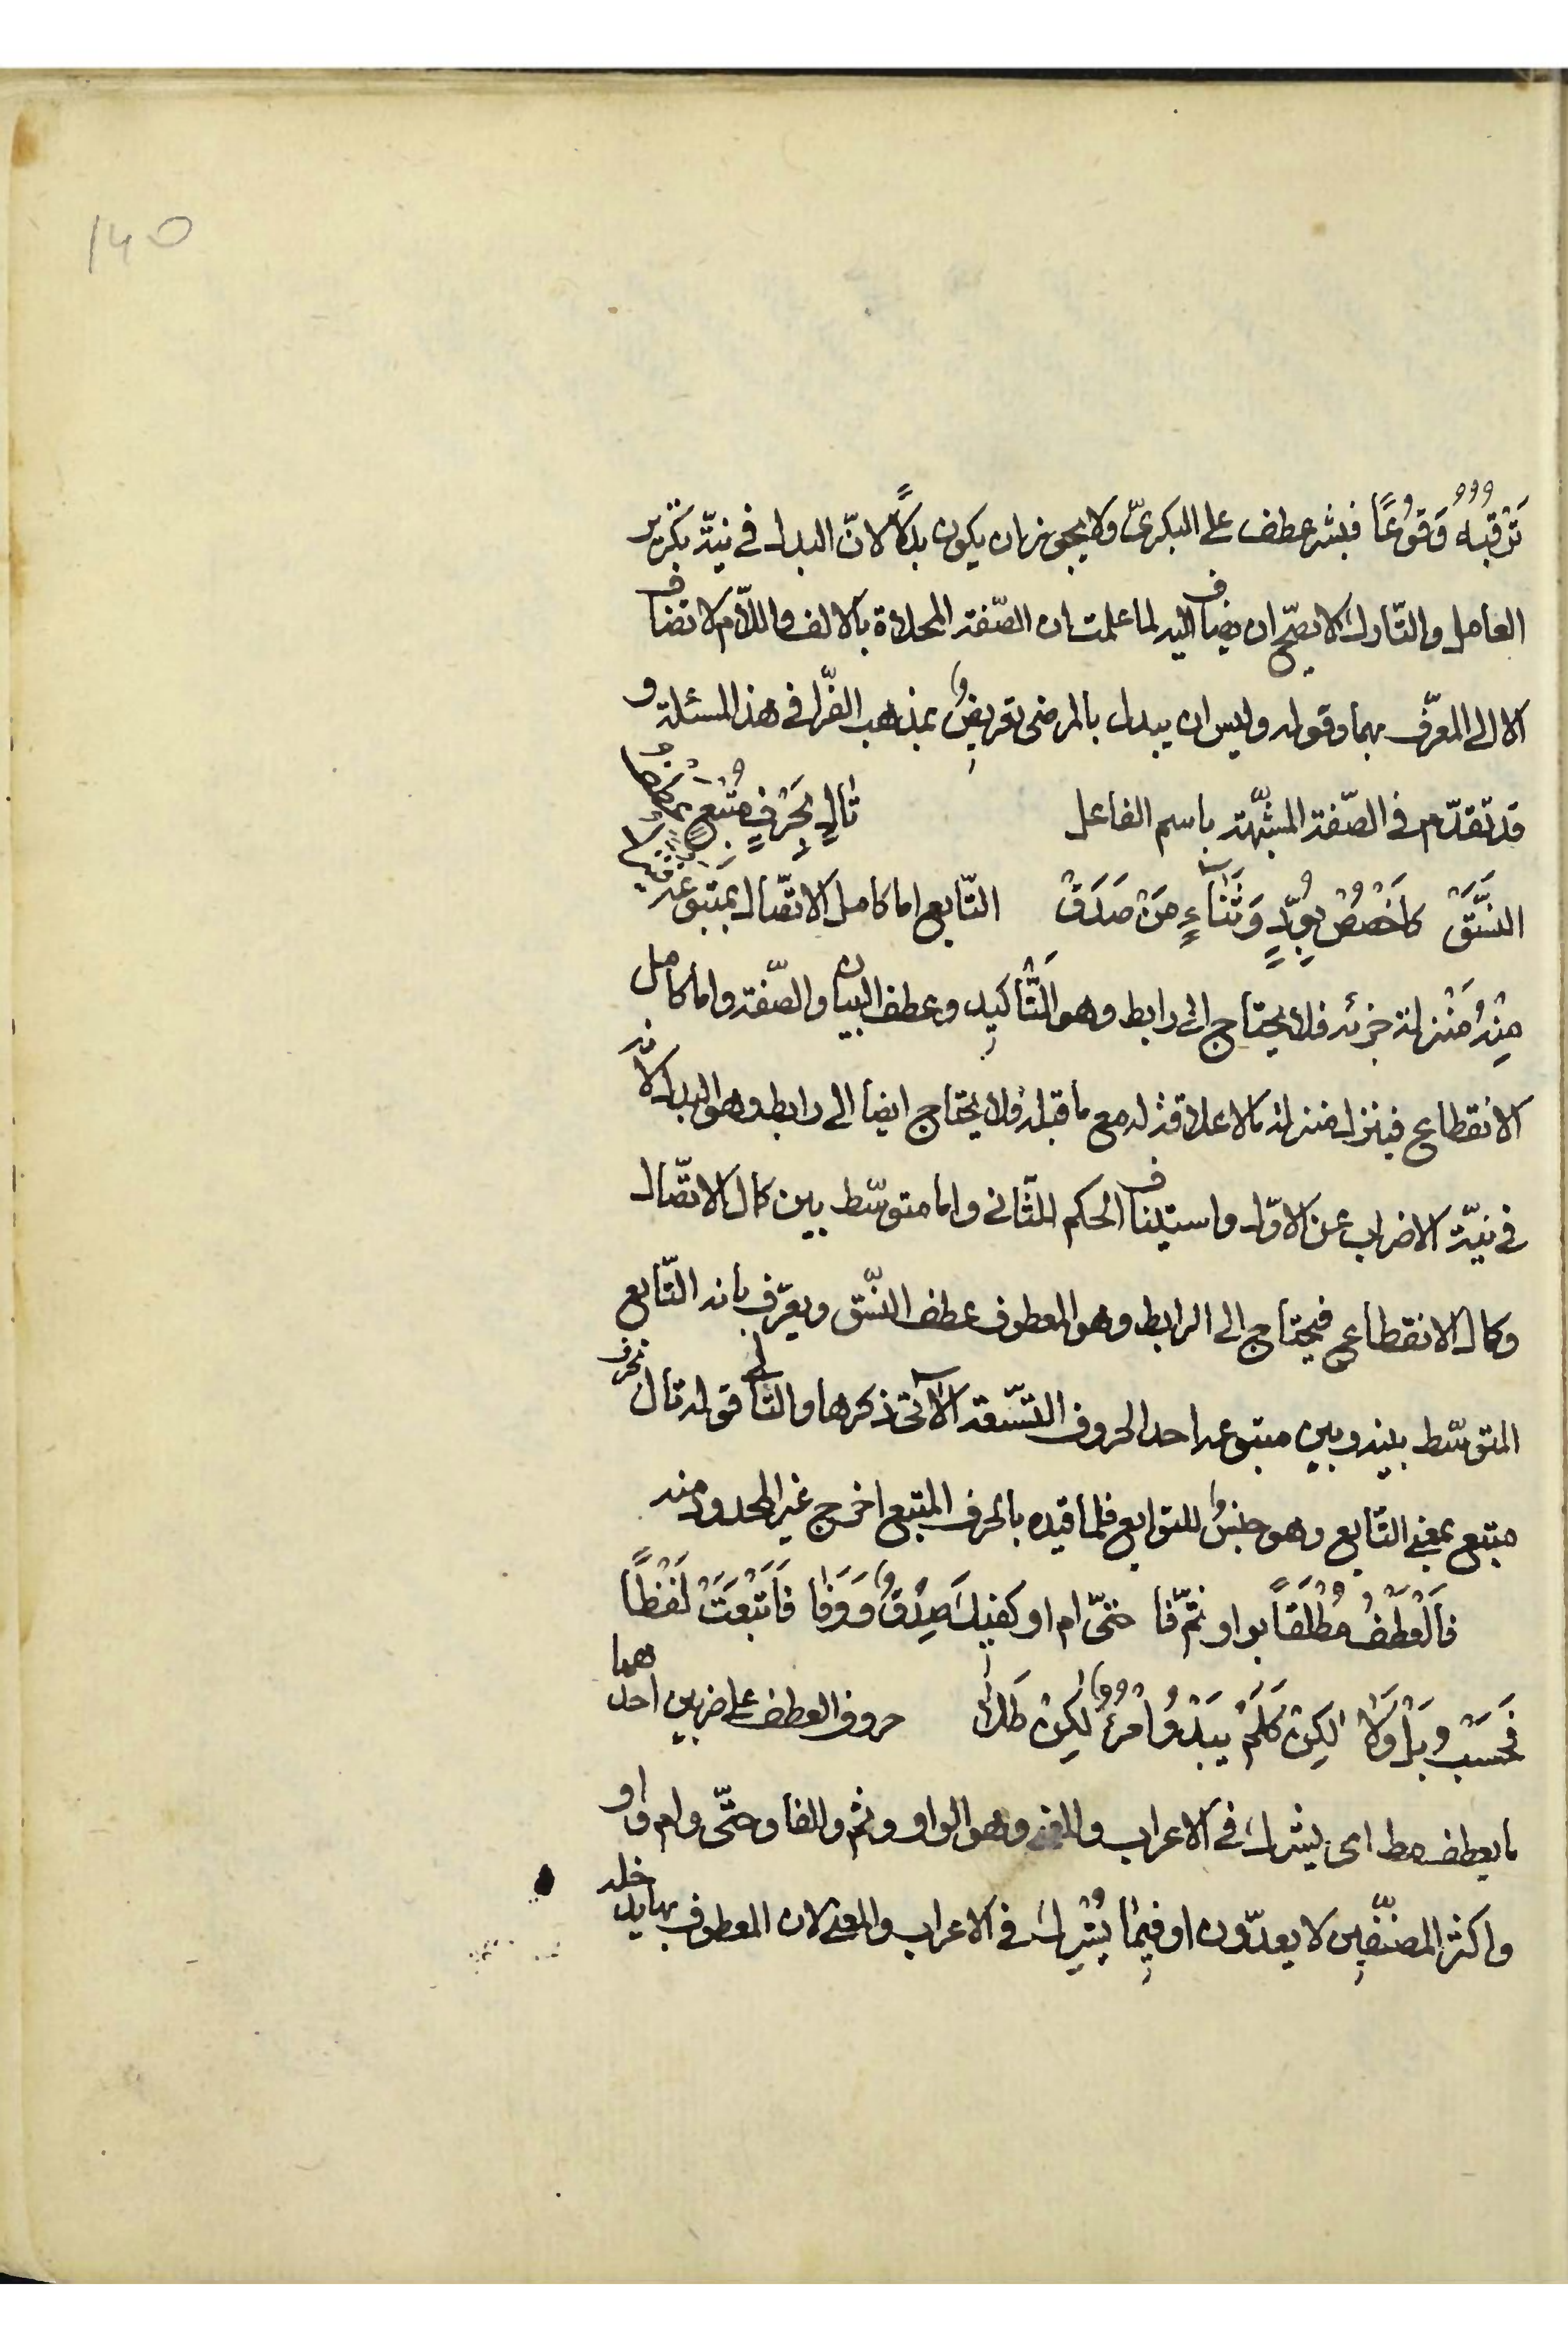 ۱۴۵
تَرْقُبُهُ وَقُوعًا فبشر عطف على البكريّ ولا يجوز ان يكون بدلًا لانّ البدل فى نيّة تكرير
العامل والتّارك لا يصحّ ان يضاف اليه لما علمت ان الصّفة المحلاة بالالف واللّام لا تضاف
الا الى المعرّف بهما وقوله وليس ان يبدل بالمرضى تعريضٌ بمذهب الفرّا فى هذ المسئلة و
قد تقدّم فى الصّفة المشبّهة باسم الفاعل تَالٍ بِحَرْفٍ مُتْبِعٍ عَطْفُ
النَّسَقْ كَاخْصُصْ بِوُدٍّ وَثَنَاءٍ مَنْ صَدَقْ التّابع اما كامل الاتّصال بمتبوعه فينزل
مِنْهُ مَنْزلة جزئه فلا يحتاج الى رابط وهو التَّاكيد وعطف البيان والصّفة واما كامل
الانقطاع فينزل منزلة ما لا علاقة له مع ما قبله فلا يحتاج ايضا الى رابط وهو البدل لانه
فى نيّة الاضراب عن الاوّل واستيناف الحكم للثّانى واما متوسّط بين كمال الاتّصال
وكمال الانقطاع فيحتاج الى الرابط وهو المعطوف عطف النّسق ويعرّف بانه التّابع
المتوسّط بينه وبين متبوعه احد الحروف التّسعة الآتى ذكرها والتالى قوله تال بحرف
متبع بمعنى التّابع وهو جنسٌ للتوابع فلما قيده بالحرف المتبع اخرج غير المحدود منه
فَالْعَطْفُ مُطْلَقًا بواو ثمّ فا حتّى ام او كفيكَ صِدْقٌ وَوَفَا فَاَتْبَعَتْ لَفْظًا
فَحَسْب وبَلْ وَلا لكِنْ كَلَمْ يَبْدُ امْرُؤٌ لكِنْ طَلَا حروف العطف على ضربين احدهما
ما يعطف مط اى يشرك فى الاعراب والمعنى وهو الواو وثم والفا وحتّى وام واو
واكثر المصنّفين لا يعدّون او فيما يُشرِك فى الاعراب والمعنى لان المعطوف بها يدخله